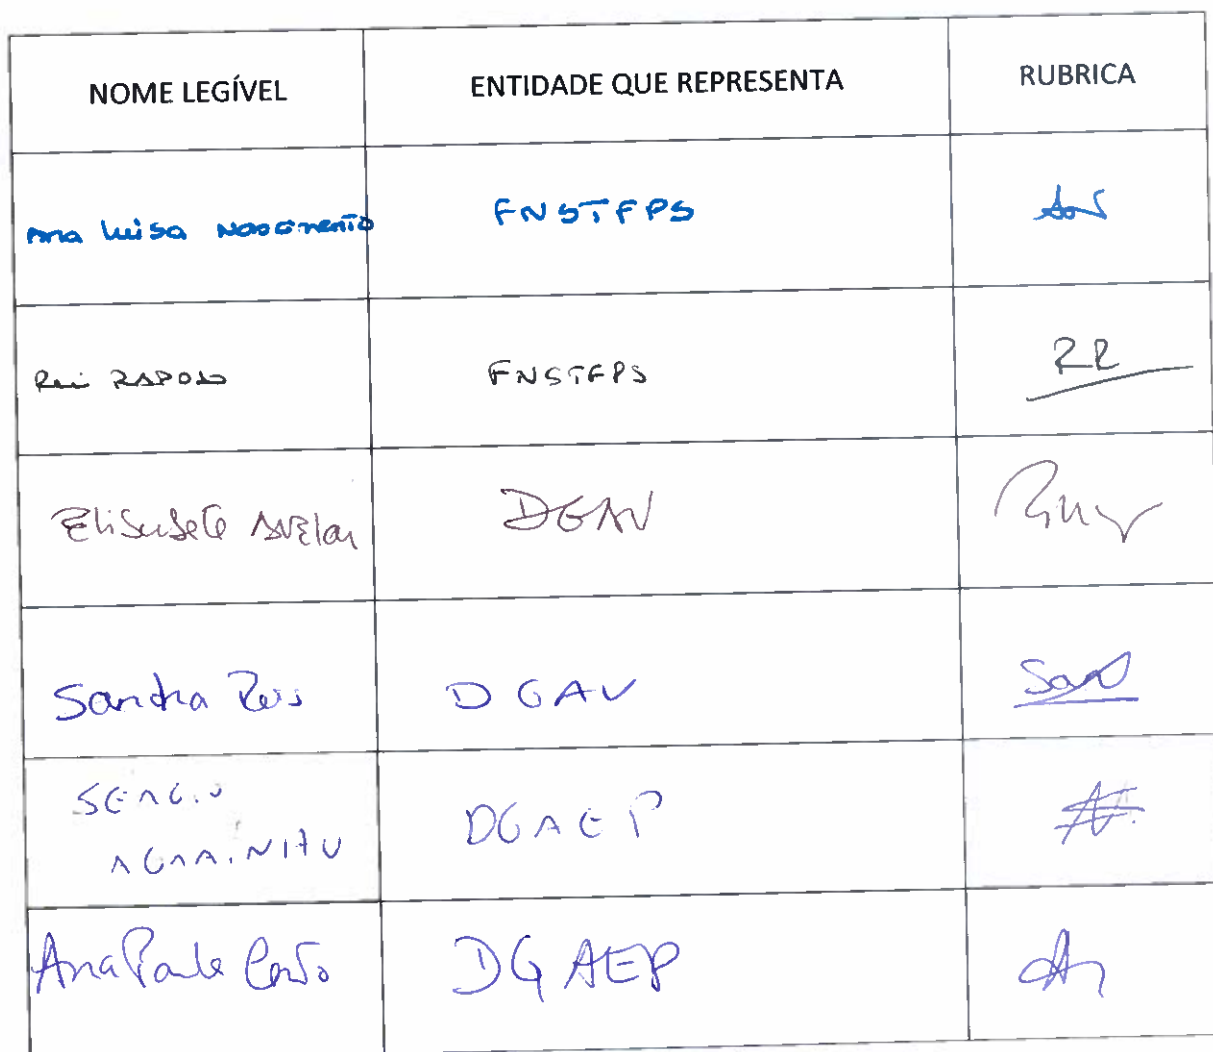 NOME LEGÍVEL ENTIDADE QUE REPRESENTA RUBRICA
Ana Luisa Nascimento FNSTFPS
Rui RAPOSO FNSTFPS RR
Elisabete Avelar DGAV
Sandra Reis DGAV
SERGIO DGAEP
Ana Paula DGAEP